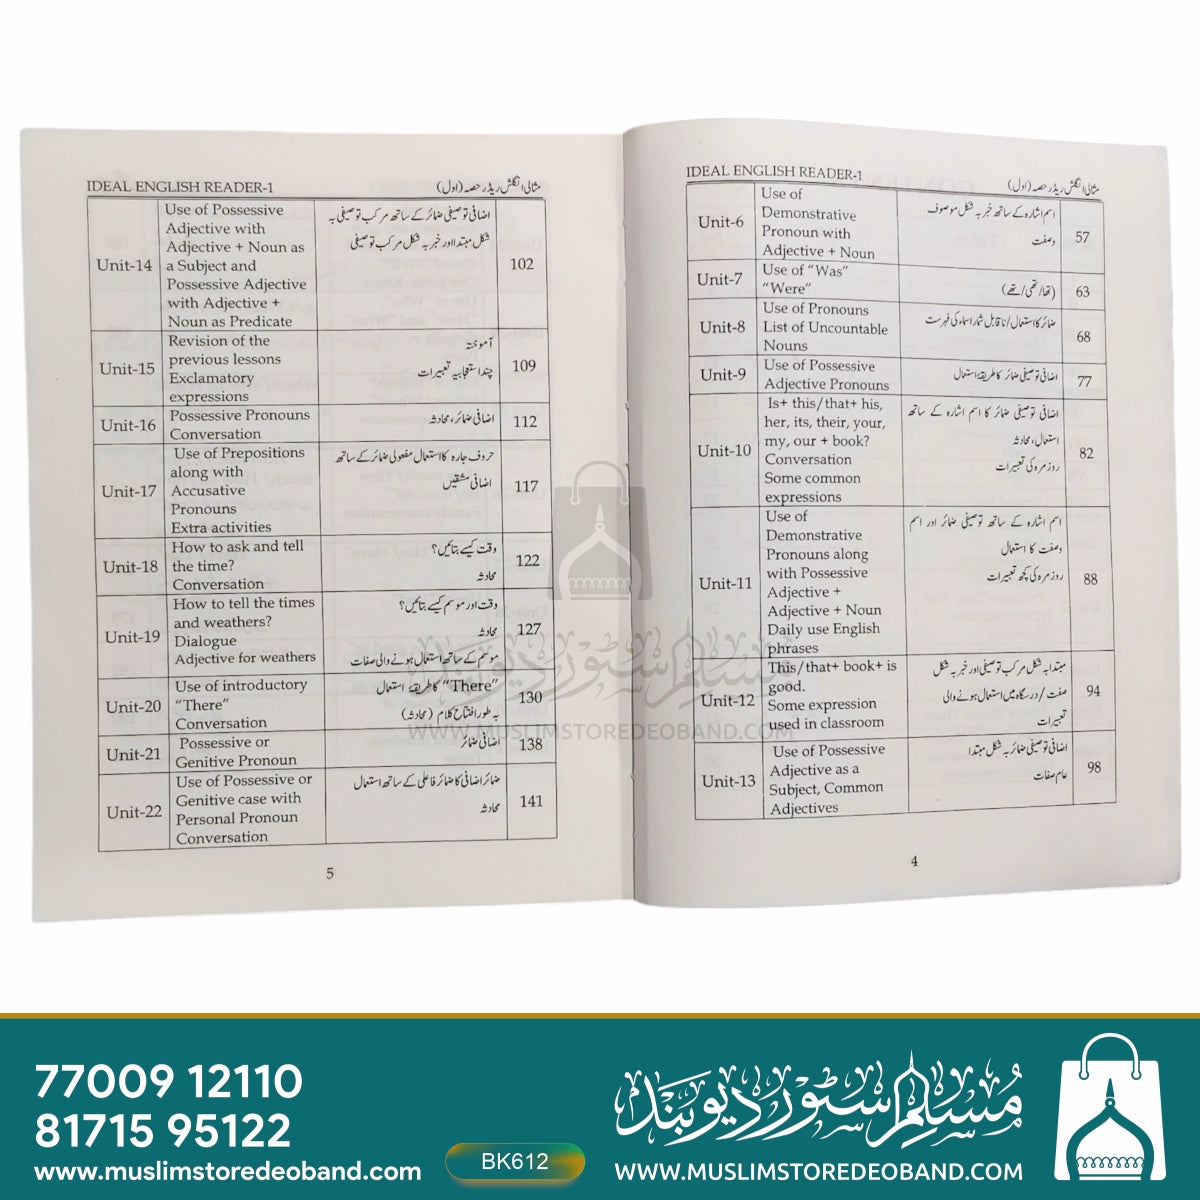 IDEAL ENGLISH READER-1
مثالی انگلش ریڈر حصہ (اول)
Unit-14
Use of Possessive
Adjective with
Adjective + Noun as
a Subject and
Possessive Adjective
with Adjective +
Noun as Predicate
اضافی توصیفی ضمائر کے ساتھ مرکب توصیفی بہ
شکل مبتدا اور خبر بہ شکل مرکب توصیفی
102
Unit-15
Revision of the
previous lessons
Exclamatory
expressions
آموختہ
چند استعجابیہ تعبیرات
109
Unit-16
Possessive Pronouns
Conversation
اضافی ضمائر، محادثہ
112
Unit-17
Use of Prepositions
along with
Accusative
Pronouns
Extra activities
حروف جارہ کا استعمال مفعولی ضمائر کے ساتھ
اضافی مشقیں
117
Unit-18
How to ask and tell
the time?
Conversation
وقت کیسے بتائیں؟
محادثہ
122
Unit-19
How to tell the times
and weathers?
Dialogue
Adjective for weathers
وقت اور موسم کیسے بتائیں؟
محادثہ
موسم کے ساتھ استعمال ہونے والی صفات
127
Unit-20
Use of introductory
“There”
Conversation
“There” کا طریقۂ استعمال
بہ طور افتتاح کلام (محادثہ)
130
Unit-21
Possessive or
Genitive Pronoun
اضافی ضمائر
138
Unit-22
Use of Possessive or
Genitive case with
Personal Pronoun
Conversation
ضمائر اضافی کا ضمائر فاعلی کے ساتھ استعمال
محادثہ
141
5
IDEAL ENGLISH READER-1
مثالی انگلش ریڈر حصہ (اول)
Unit-6
Use of
Demonstrative
Pronoun with
Adjective + Noun
اسم اشارہ کے ساتھ خبر بہ شکل موصوف
وصفت
57
Unit-7
Use of “Was”
“Were”
(تھا/تھی/تھے)
63
Unit-8
Use of Pronouns
List of Uncountable
Nouns
ضمائر کا استعمال/ناقابل شمار اسماء کی فہرست
68
Unit-9
Use of Possessive
Adjective Pronouns
اضافی توصیفی ضمائر کا طریقۂ استعمال
77
Unit-10
Is+ this/that+ his,
her, its, their, your,
my, our + book?
Conversation
Some common
expressions
اضافی توصیفی ضمائر کا اسم اشارہ کے ساتھ
استعمال، محادثہ
روز مرہ کی تعبیرات
82
Unit-11
Use of
Demonstrative
Pronouns along
with Possessive
Adjective +
Adjective + Noun
Daily use English
phrases
اسم اشارہ کے ساتھ توصیفی ضمائر اور اسم
وصفت کا استعمال
روز مرہ کی کچھ تعبیرات
88
Unit-12
This/that+ book+ is
good.
Some expression
used in classroom
مبتدا بہ شکل مرکب توصیفی اور خبر بہ شکل
صفت / درسگاہ میں استعمال ہونے والی
تعبیرات
94
Unit-13
Use of Possessive
Adjective as a
Subject, Common
Adjectives
اضافی توصیفی ضمائر بہ شکل مبتدا
عام صفات
98
4
مسلم سٹور دیوبند
WWW.MUSLIMSTOREDEOBAND.COM
77009 12110
81715 95122
www.muslimstoredeoband.com
BK612
مسلم سٹور دیوبند
WWW.MUSLIMSTOREDEOBAND.COM